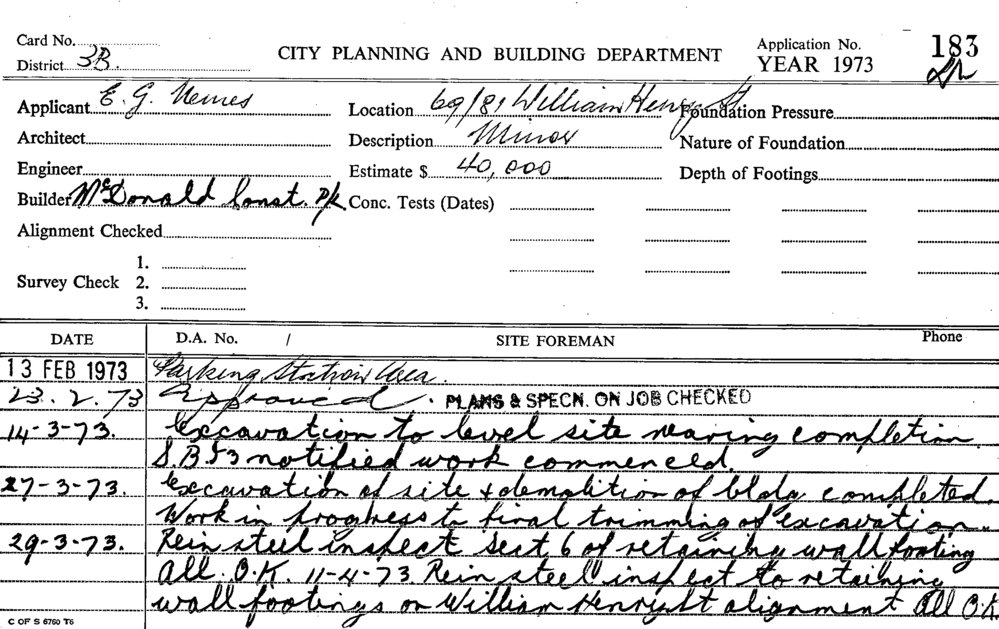 Card No.
District 3B.
CITY PLANNING AND BUILDING DEPARTMENT
Application No. 183
YEAR 1973
Applicant E. G. Nemes
Location 69/81 William Henry St
Foundation Pressure
Architect
Description Minor
Nature of Foundation
Engineer
Estimate $ 40,000
Depth of Footings
Builder McDonald Const. P/L.
Conc. Tests (Dates)
Alignment Checked
Survey Check
1.
2.
3.
DATE
D.A. No. /
SITE FOREMAN
Phone
13 FEB 1973 Parking Station Area.
23.2.73 Approved. PLANS & SPECN. ON JOB CHECKED
14-3-73. Excavation to level site nearing completion
S.B53 notified work commenced.
27-3-73. Excavation of site & demolition of bldg completed.
Work in progress to final trimming of excavation.
29-3-73. Rein steel inspect Sect 6 of retaining wall footing
All O.K. 11-4-73 Rein steel inspect to retaining
wall footings on William Henry St alignment All O.K.
C OF S 6760 T6